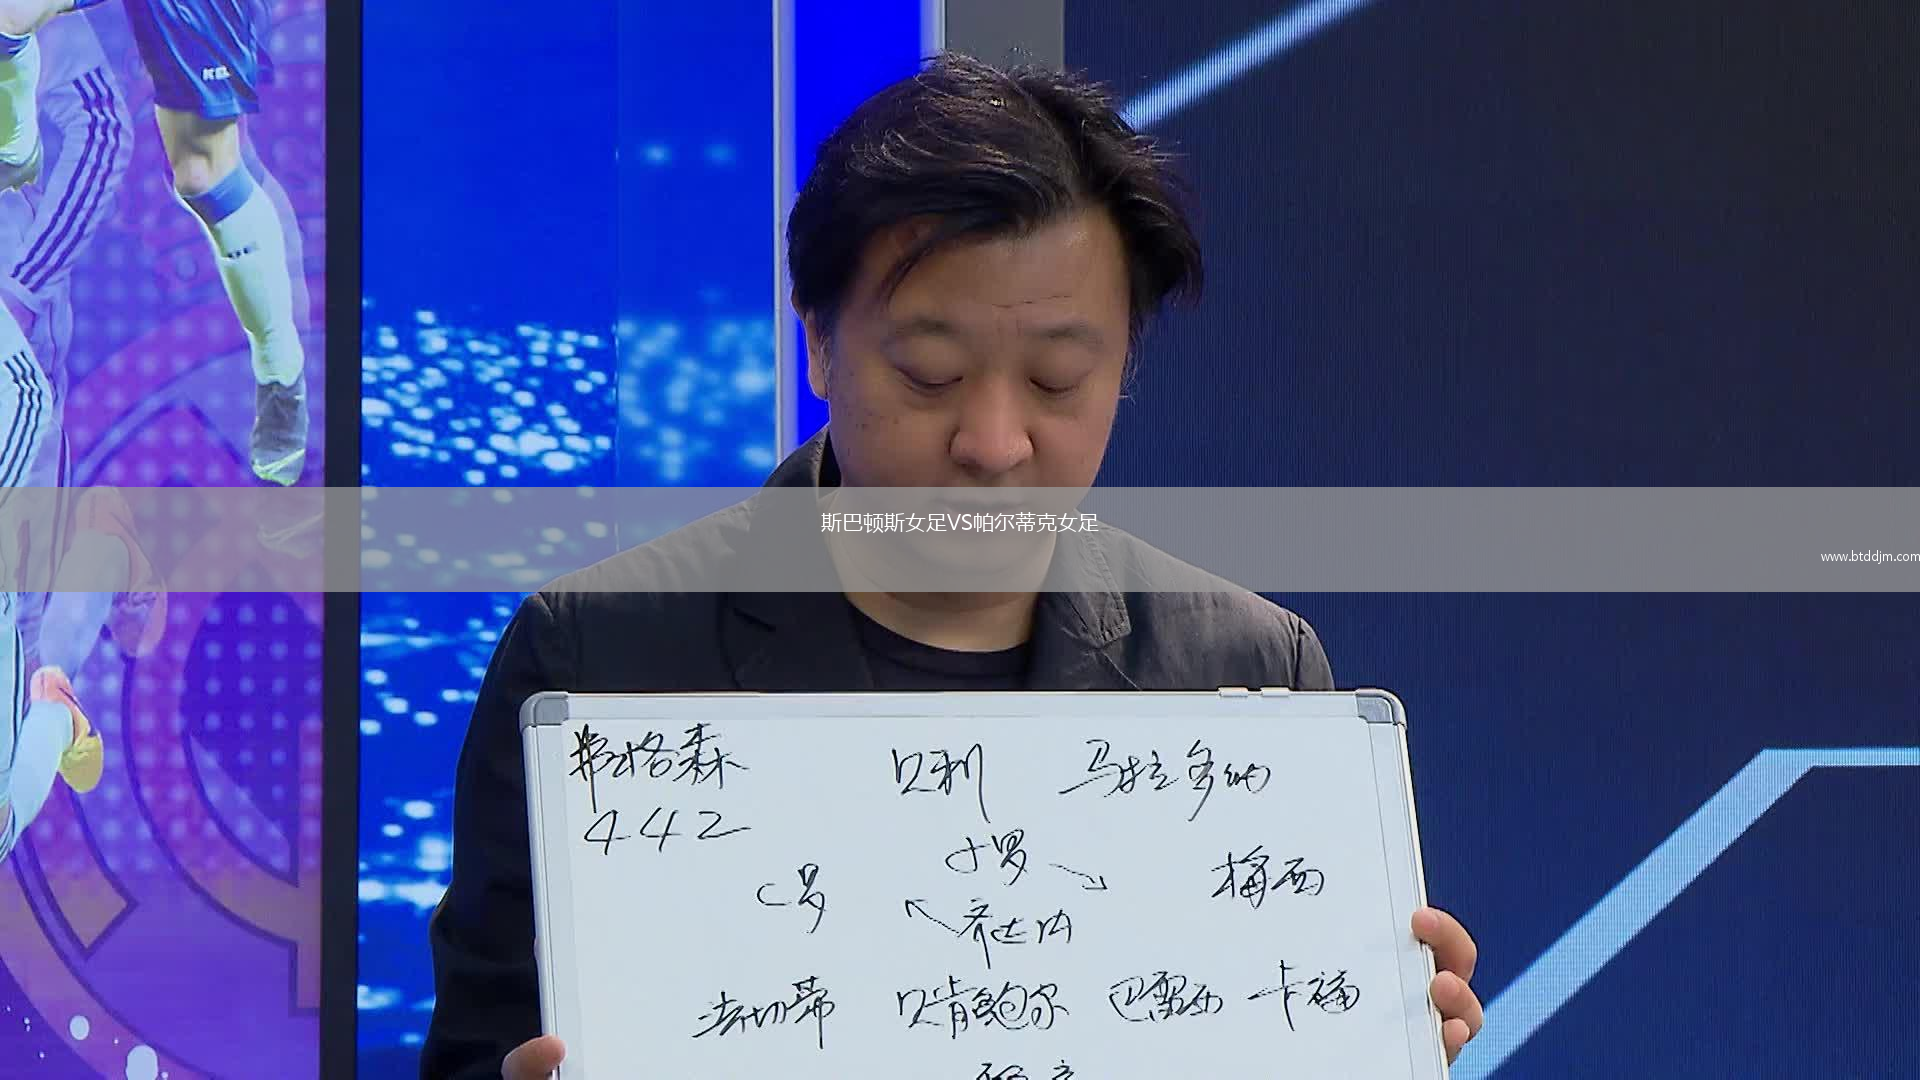 KEL
斯巴顿斯女足VS帕尔蒂克女足
www.btddjm.com
弗格森 贝利 马拉多纳
442
小罗
C罗 梅西
齐达内
法切蒂 贝肯鲍尔 巴雷西 卡福